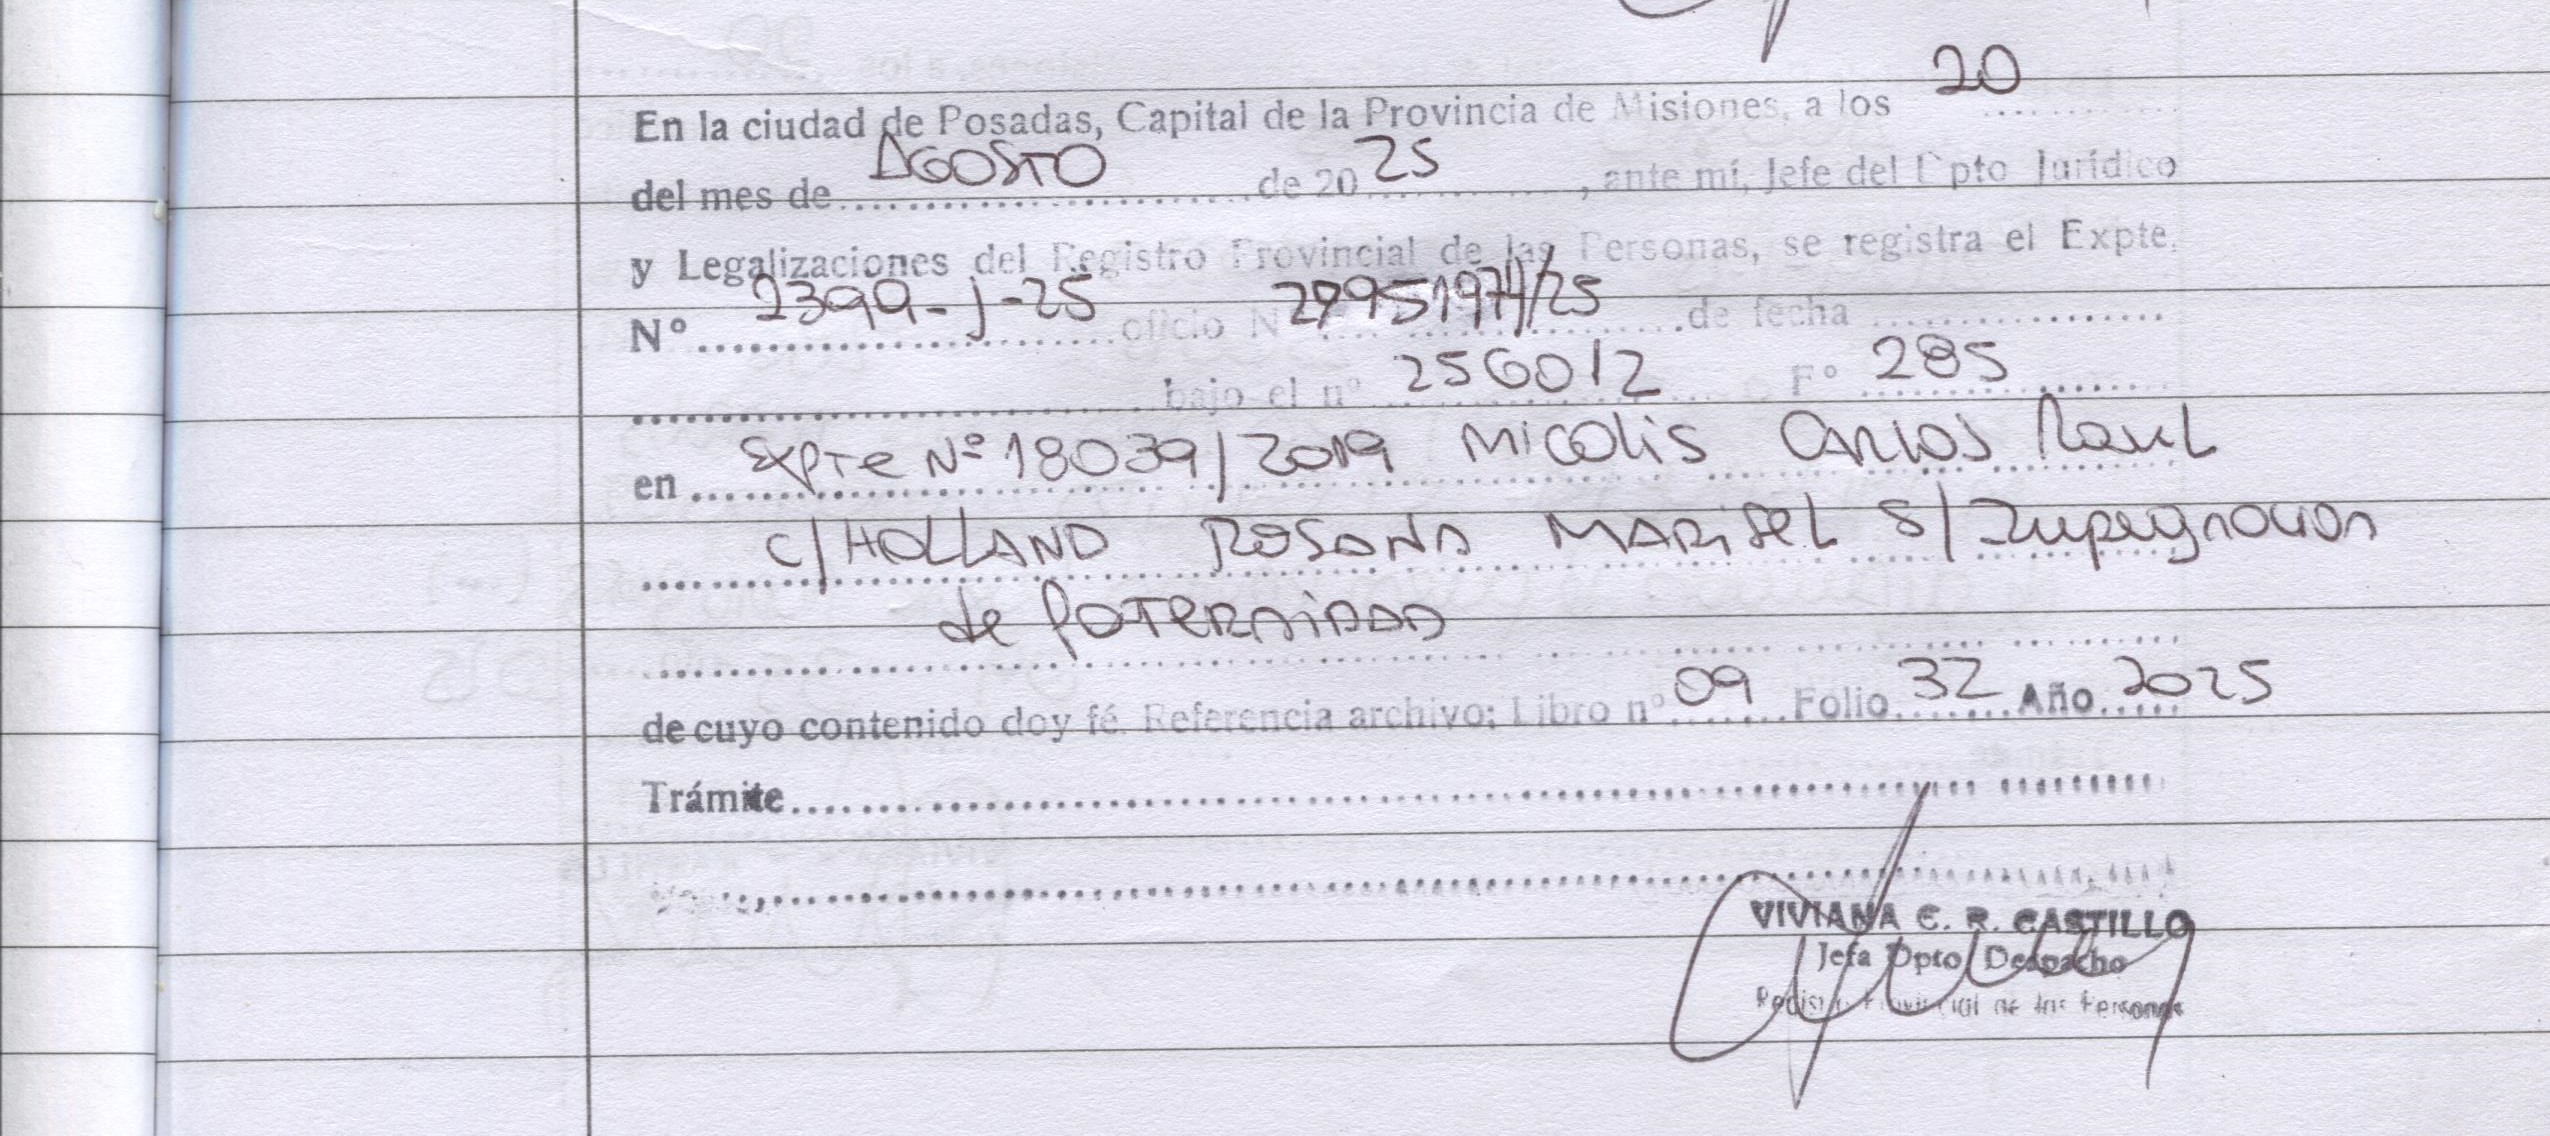 En la ciudad de Posadas, Capital de la Provincia de Misiones, a los 20
del mes de AGOSTO de 20 25, ante mí, Jefe del Dpto Jurídico
y Legalizaciones del Registro Provincial de las Personas, se registra el Expte.
N° 2399-J-25 oficio N 27951974/25 de fecha
bajo el n° 256012 F° 285
en Expte Nº 18039/2019 Micolis Carlos Raul
c/HOLLAND ROSANA MARISEL S/Impugnacion
de PATERNIDAD
de cuyo contenido doy fé. Referencia archivo: Libro n° 09 Folio 32 Año 2025
Trámite
VIVIANA C. R. CASTILLO
Jefa Dpto Despacho
Registro Provincial de las Personas